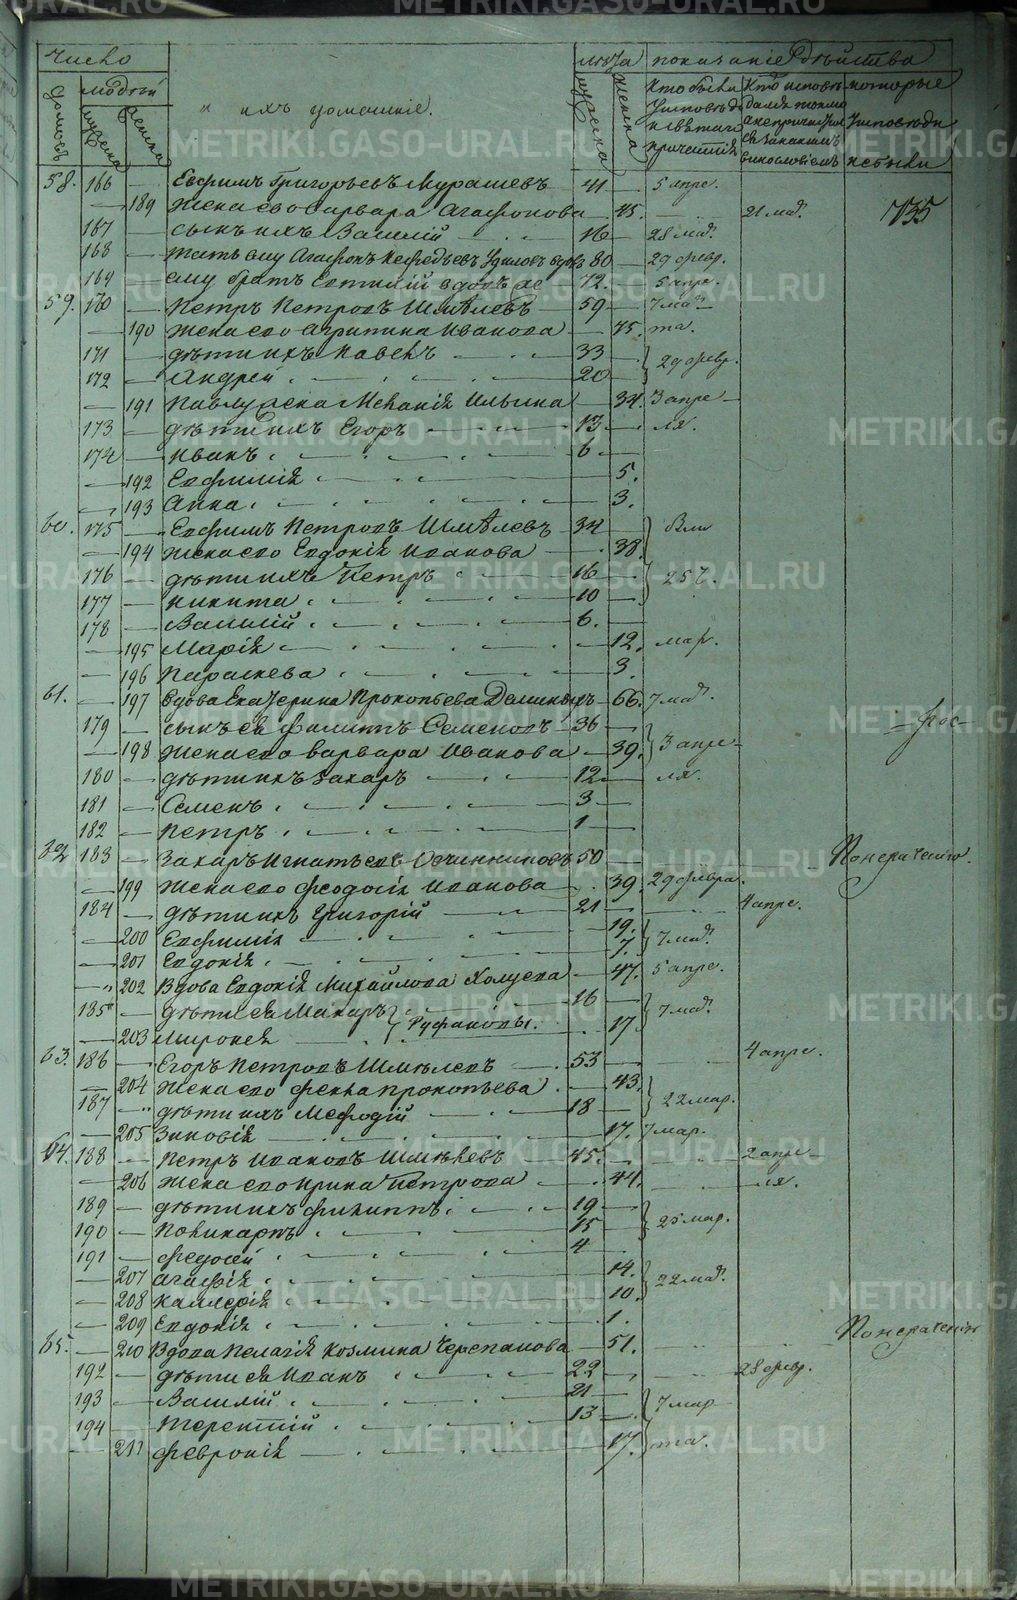 Число лѣта показаніе дѣйства
домовъ людей мужска женска и ихъ домашніе. мужска женска Кто были у исповѣди и святаго причастія Кто исповѣдались токмо а не причастил. за какимъ винословіемъ которые у исповѣди не были
58. 166 — Евфимъ Григорьевъ Мурашевъ 41 — 5 апре. 735
— 189 жена его Варвара Агафонова — 45. — 21 мар.
167 — сынъ ихъ Василій 16 — 28 мар.
168 — 80 — 29 февр.
169 — ему братъ вдовъ 72. — 5 апре.
59. 170 — Петръ Петровъ Шмѣлевъ — 59 — 7 мар
— 190 жена его Агрипина Иванова — 75. та.
171 — дѣти ихъ Павелъ 33 — } 29 февр.
172 — Андрей 20 —
— 191 Павлу жена Меланія Ильина — 34. 3 апре
173 — дѣти ихъ Егоръ 13 — ля.
174 — Иванъ 6 —
— 192 Евфимія 5.
— 193 Анна 3.
60. 175 — Евфимъ Петровъ Шмѣлевъ 34 —
— 194 жена его Евдокія Иванова 38.
176 — дѣти ихъ Петръ 16 — } 25
177 — Никита 10 —
178 — Василій 6. —
— 195 Марія 12. мар.
— 196 Параскева 3.
61. — 197 вдова Екатерина Прокопьева — 66. 7 мар.
179 — сынъ ея Филипъ Семеновъ 36 —
— 198 жена его Варвара Иванова — 39. } 3 апре
180 — дѣти ихъ Захаръ 12 — ля.
181 — Семенъ 3 —
182 — Петръ 1 —
62 183 — Захаръ Игнатьевъ Овчинниковъ 50 — По нераченію.
— 199 жена его Феодосія Иванова 39. 29 февра.
184 — дѣти ихъ Григорій 21 — 4 апре.
— 200 Евфимія 19.
— 201 Евдокія 7. } 7 мар.
— 202 Вдова Евдокія Михайлова — 47. 5 апре.
185 — дѣти ея Макаръ 16 — } 7 мар.
— 203 Миронея 17
63. 186 — Егоръ Петровъ Шмѣлевъ — 53 — 4 апре.
— 204 жена его Фекла Прокопьева — 43. } 22 мар.
187 — дѣти ихъ Мефодій 18 —
— 205 Зиновія 17. 7 мар.
64. 188 — Петръ Ивановъ Шмѣлевъ 45. — 2 апре
— 206 жена его Ирина Петрова — 44. ля.
189 — дѣти ихъ Филиппъ 19 — } 25 мар.
190 — Поликарпъ 15
191 — Федосей 4 —
— 207 Агафія 14. } 22 мар.
— 208 Каллерія 10.
— 209 Евдокія 1.
65. — 210 Вдова Пелагія Козмина Черепанова — 51. По нераченію
192 — дѣти ея Иванъ 22 — 28 февр.
193 — Василій 21 — } 7 мар
194 — Терентій 13 —
— 211 Февронія 17. та.